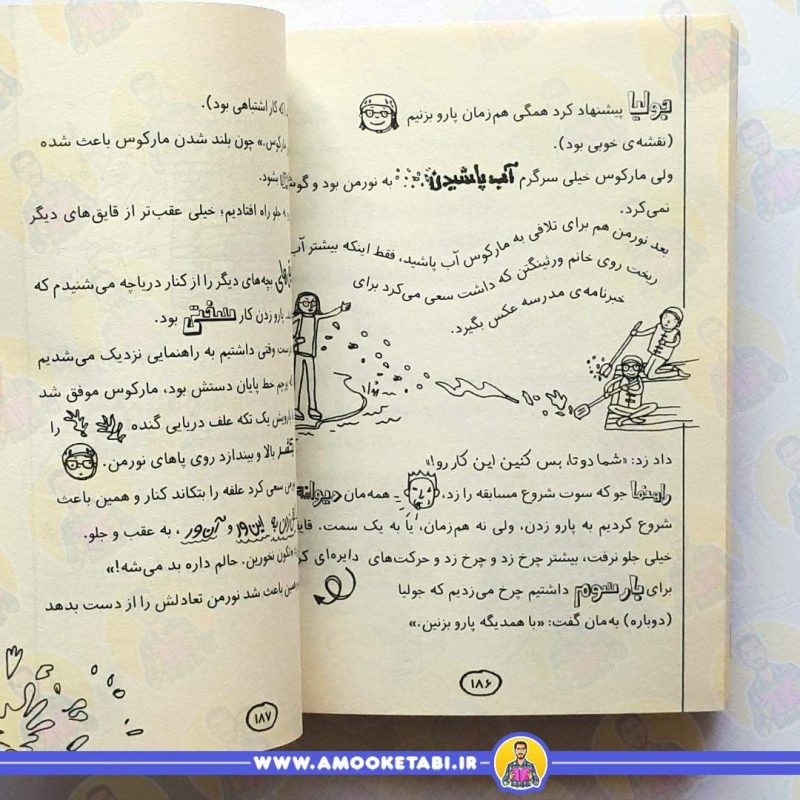 جولیا پیشنهاد کرد همگی هم‌زمان پارو بزنیم
(نقشه‌ی خوبی بود).
ولی مارکوس خیلی سرگرم آب پاشیدن به نورمن بود و گوش
نمی‌کرد.
بعد نورمن هم برای تلافی به مارکوس آب پاشید، فقط اینکه بیشتر آب
ریخت روی خانم ورثینگتن که داشت سعی می‌کرد برای
خبرنامه‌ی مدرسه عکس بگیرد.
داد زد: «شما دوتا، بس کنین این کار رو!»
راهنما جو که سوت شروع مسابقه را زد، همه‌مان دیوانه
شروع کردیم به پارو زدن، ولی نه هم‌زمان، یا به یک سمت. قایق
خیلی جلو نرفت، بیشتر چرخ زد و چرخ زد و حرکت‌های دایره‌ای
برای بار سوم داشتیم چرخ می‌زدیم که جولیا
(دوباره) به‌مان گفت: «با همدیگه پارو بزنین.»
۱۸۶
کار اشتباهی بود).
مارکوس.» چون بلند شدن مارکوس باعث شده
بشود.
جلو راه افتادیم؛ خیلی عقب‌تر از قایق‌های دیگر
بچه‌های دیگر را از کنار دریاچه می‌شنیدم که
پارو زدن کار سفتی بود.
وقتی داشتیم به راهنمایی نزدیک می‌شدیم
پرچم خط پایان دستش بود، مارکوس موفق شد
یک تکه علف دریایی گنده را
بالا و بیندازد روی پاهای نورمن.
سعی کرد علفه را بتکاند کنار و همین باعث
این‌ور و آن‌ور، به عقب و جلو.
تکون نخورین. حالم داره بد می‌شه!»
همین باعث شد نورمن تعادلش را از دست بدهد
۱۸۷
WWW.AMOOKETABI.IR